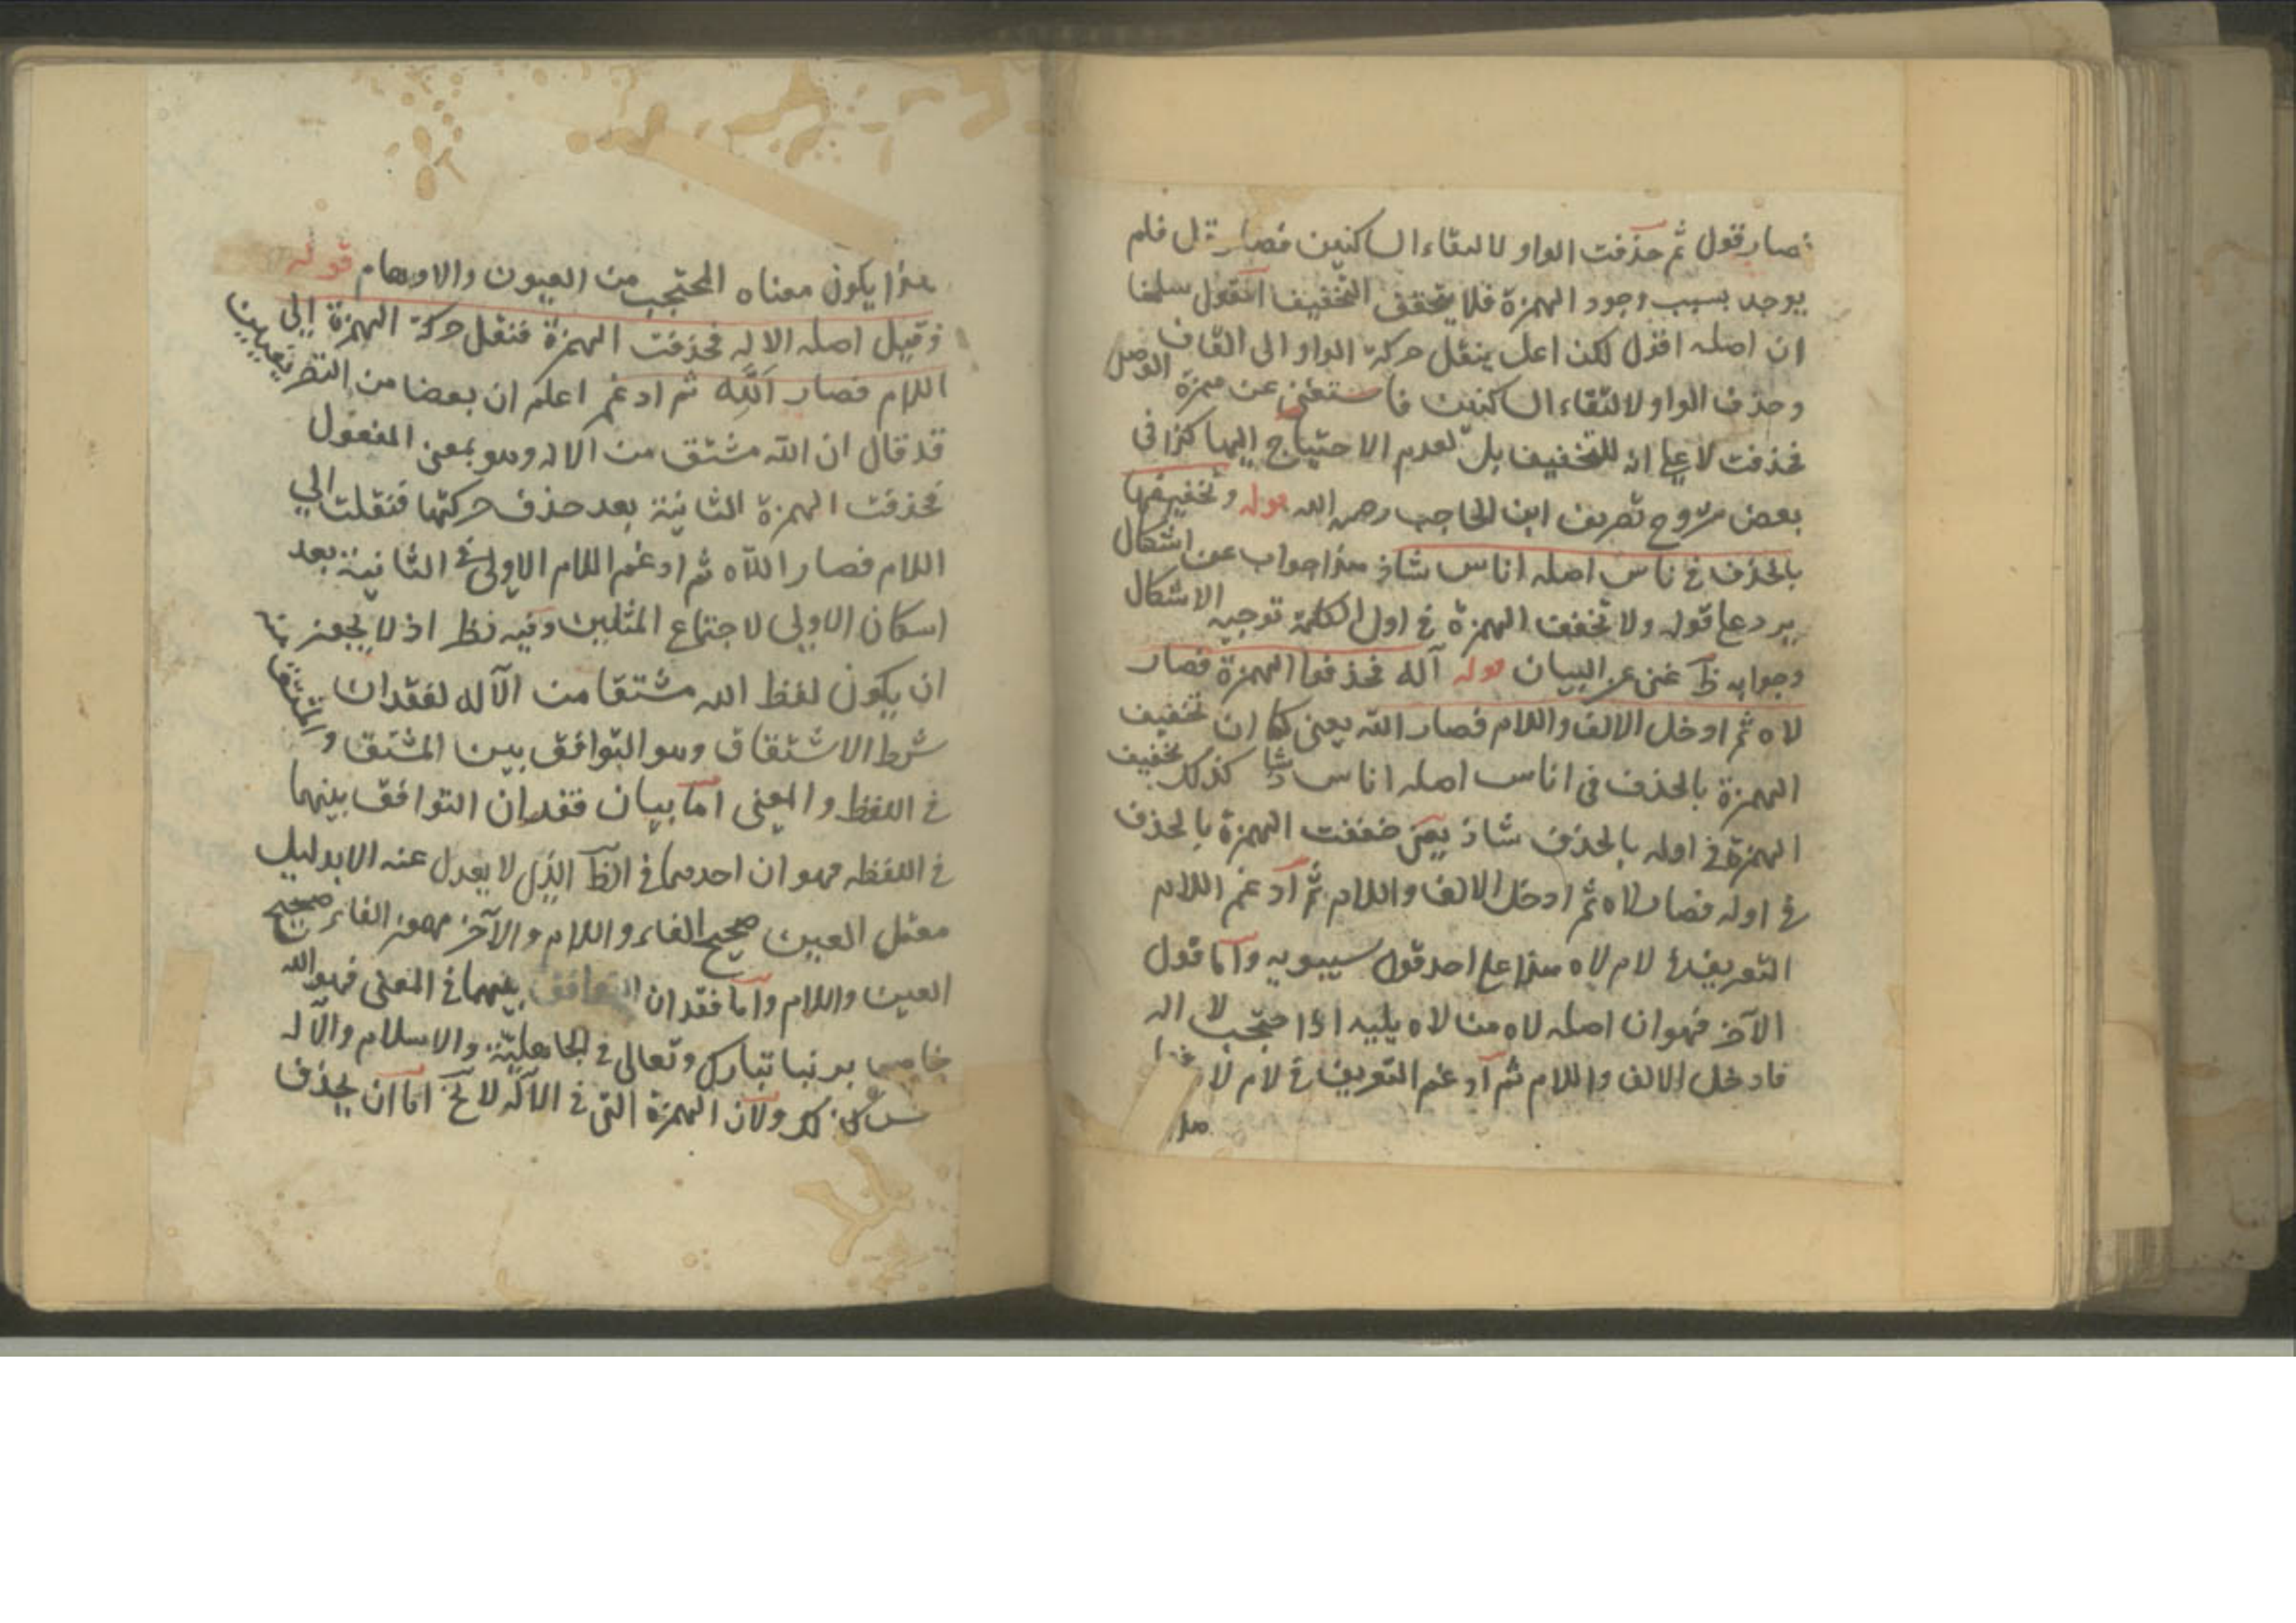 فصار قول ثم حذفت الواو لالتقاء الساكنين فصار قل فلم
يوجد بسبب وجود الهمزة فلا يتحقق التخفيف المقول سلمنا
ان اصله اقول لكن اعل بنقل حركة الواو الى القاف
وحذف الواو لالتقاء الساكنين فاستغنى عن همزة الوصل
فحذفت لا على انه للتخفيف بل لعدم الاحتياج اليها كذا في
بعض شروح تصريف ابن الحاجب رحمه الله قوله وتخفيفها
بالحذف في ناس اصله اناس شاذ هذا جواب عن اشكال
يرد على قوله ولا تخفف الهمزة في اول الكلمة توجيه الاشكال
وجوابه ظ غني عن البيان قوله آله فحذفوا الهمزة فصار
لاه ثم ادخل الالف واللام فصار الله يعني كما ان تخفيف
الهمزة بالحذف في اناس اصله اناس شاذ كذلك تخفيف
الهمزة في اوله بالحذف شاذ يعني خففت الهمزة بالحذف
في اوله فصار لاه ثم ادخل الالف واللام ثم ادغم اللام
التعريف في لام لاه هذا على احد قول سيبويه واما قول
الآخر فهو ان اصله لاه من لاه يليه اذا احتجب لا اله
فادخل الالف واللام ثم ادغم التعريف في لام لاه
هذا
هذا يكون معناه المحتجب من العيون والاوهام قوله
وقيل اصله الاله فحذفت الهمزة فنقل حركة الهمزة الى
اللام فصار اللّه ثم ادغم اعلم ان بعضا من التصريفيين
قد قال ان الله مشتق من الاله وهو بمعنى المفعول
فحذفت الهمزة الثانية بعد حذف حركتها فنقلت الى
اللام فصار اللاه ثم ادغم اللام الاولى في الثانية بعد
اسكان الاولى لاجتماع المثلين وفيه نظر اذ لا يجوز
ان يكون لفظ الله مشتقا من الآله لفقدان
شرط الاشتقاق وهو التوافق بين المشتق والمشتق منه
في اللفظ والمعنى اما بيان فقدان التوافق بينهما
في اللفظ فهو ان احدهما في الظ الذي لا يعدل عنه الا بدليل
معتل العين صحيح الفاء واللام والآخر مهموز الفاء صحيح
العين واللام واما فقدان التوافق بينهما في المعنى فهو الله
خاص بربنا تبارك وتعالى في الجاهلية والاسلام والآله
ليس كذلك ولان الهمزة التي في الآله لا يخ اما ان يحذف